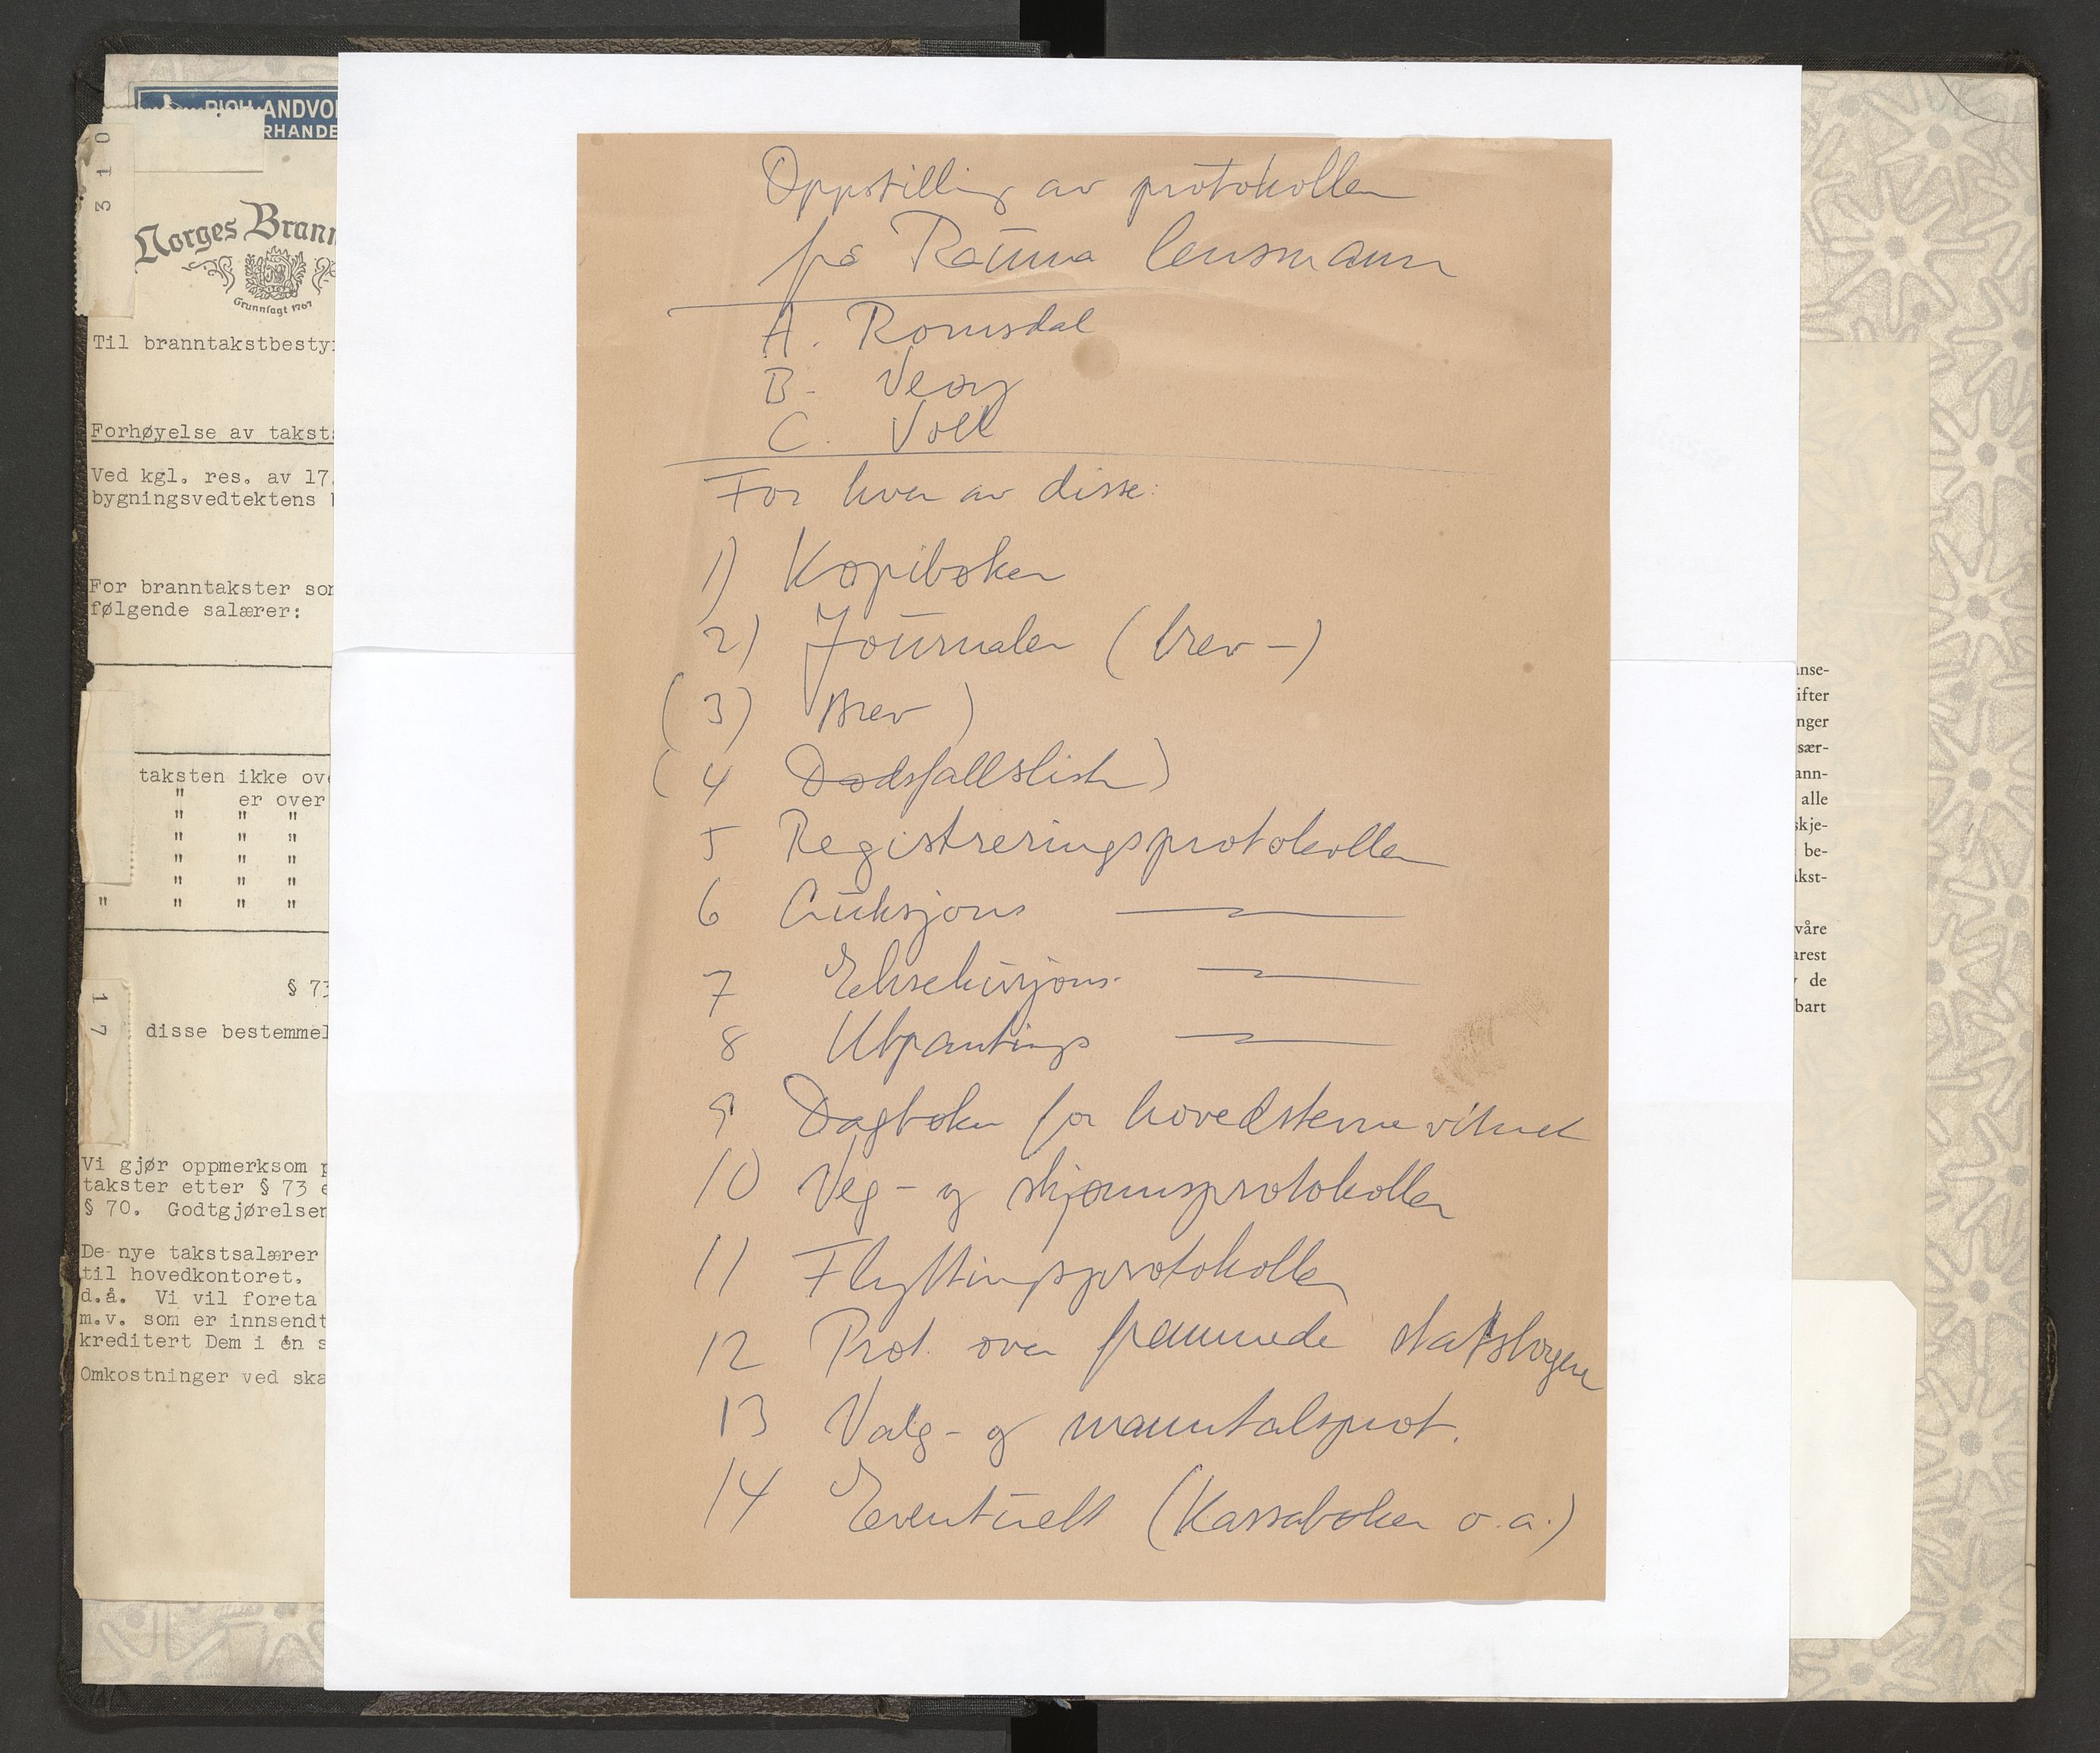 Oppstilling av protokoller
på Rauma lensmann
A. Romsdal
B. Veøy
C. Voll
For hver av disse:
1) Kopibøker
2) Journaler (brev-)
(3) Brev )
(4 Dødsfallsliste)
5 Registreringsprotokoller
6 Auksjons ———
7 Eksekusjons- ———
8 Utpantings ———
9 Dagbøker for hovedstevnevitnet
10 Veg- og skjønnsprotokoller
11 Flyttingsprotokoller
12 Prot. over fremmede statsborgere
13 Valg- og manntalsprot.
14 Eventuelt (Kassabøker o.a.)
3 1 0
ANDVO
RHANDE
Norges Brann
Grunnlagt 1767
Til branntakstbesty
Forhøyelse av takst
Ved kgl. res. av 17.
bygningsvedtektens
For branntakster som
følgende salærer:
taksten ikke ov
" er over
" " "
" " "
" " "
" " "
" " " "
§ 73
1 7
disse bestemmel
Vi gjør oppmerksom p
takster etter § 73 e
§ 70. Godtgjørelsen
De nye takstsalærer
til hovedkontoret.
d.å. Vi vil foreta
m.v. som er innsendt
kreditert Dem i én s
Omkostninger ved ska
nse-
ifter
nger
sær-
ann-
alle
skje-
be-
kst-
våre
arest
de
bart